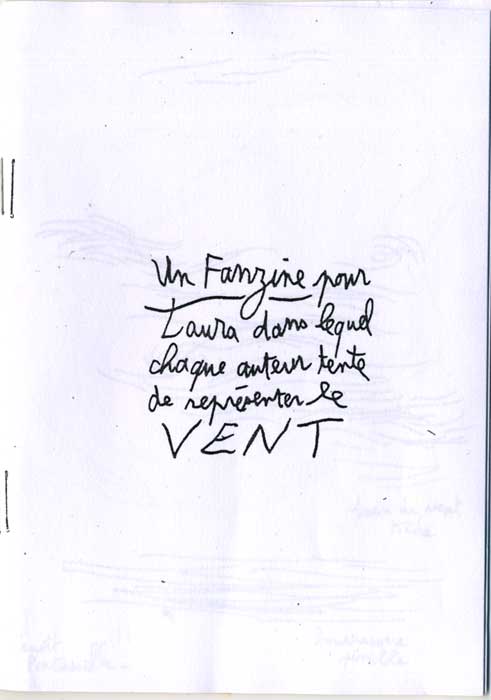 Un Fanzine pour
Laura dans lequel
chaque auteur tente
de représenter le
VENT